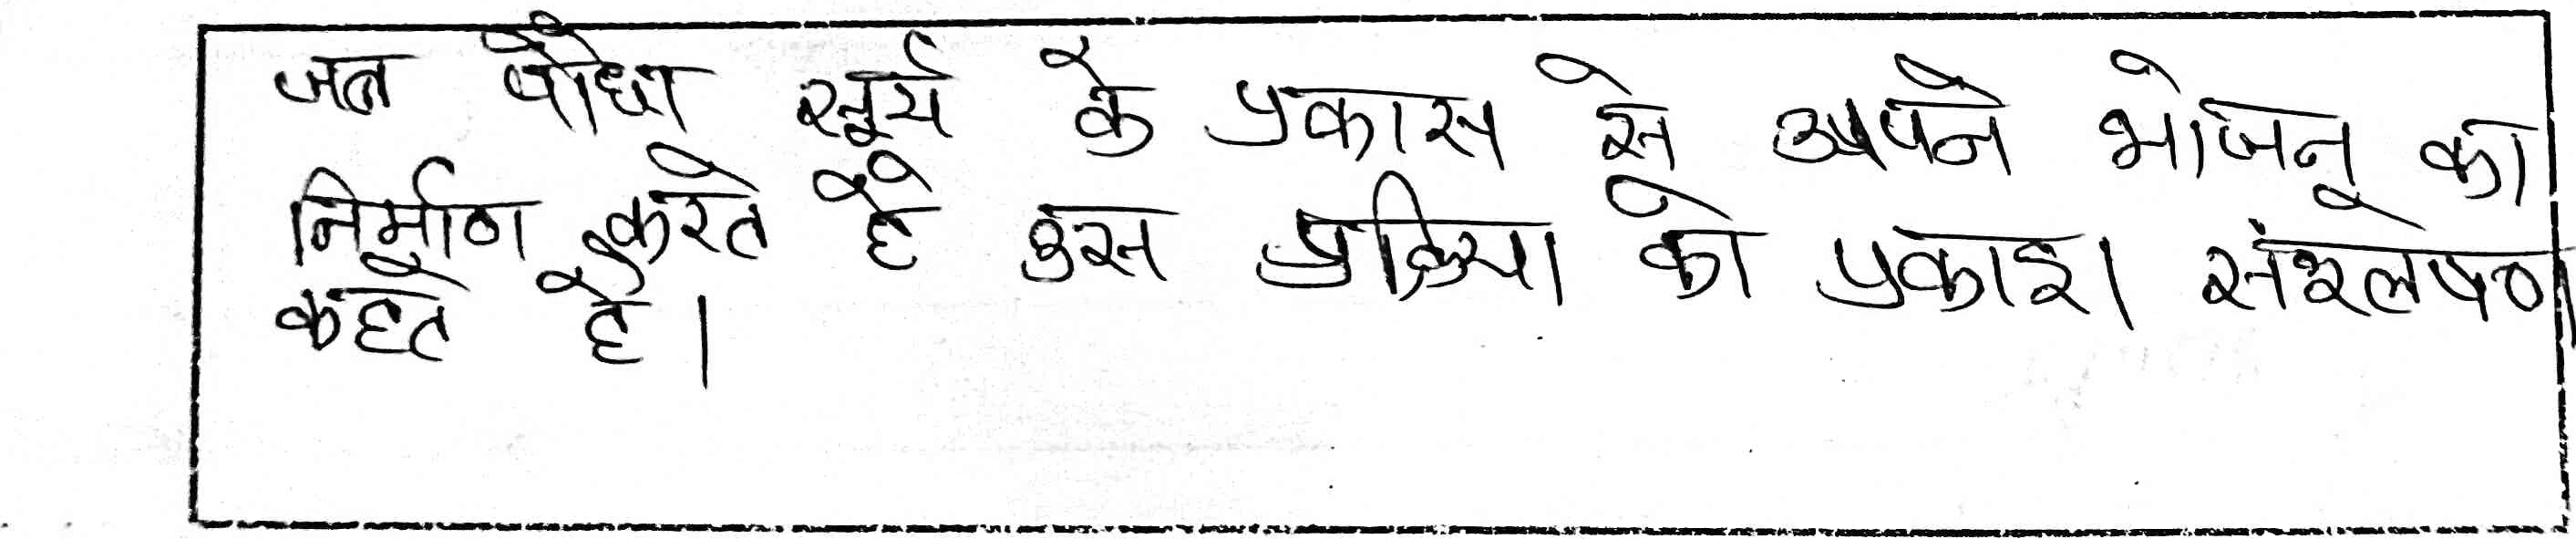 जब पौधा सूर्य के प्रकास से अपने भोजन का
निर्माण करते है उस प्रक्रिया को प्रकाश संश्लेषण
कहते है।